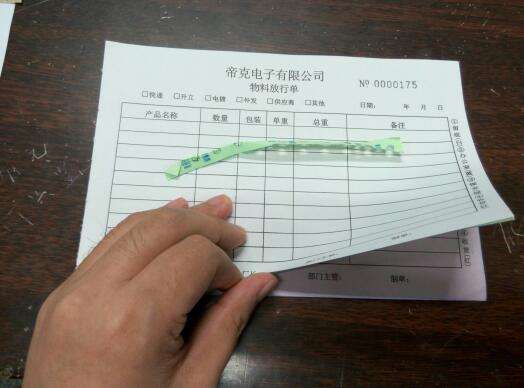 帝克电子有限公司
物料放行单
Nº 0000175
□快递 □升立 □电镀 □补发 □供应商 □其他
日期： 年 月 日
产品名称 数量 包装 单重 总重 备注
部门主管： 制单：